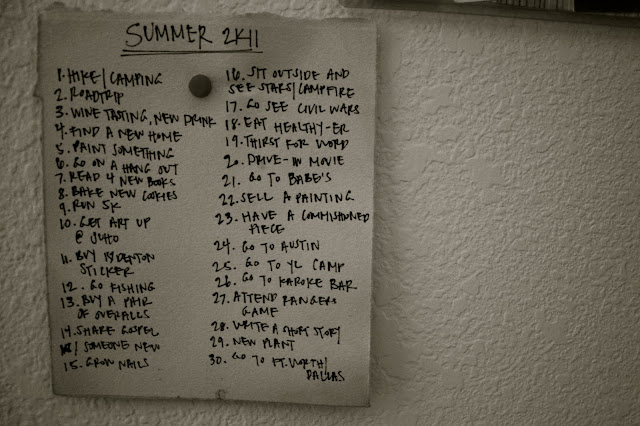 SUMMER 2K11
1. HIKE/CAMPING
2. ROADTRIP
3. WINE TASTING, NEW DRINK
4. FIND A NEW HOME
5. PAINT SOMETHING
6. GO ON A HANG OUT
7. READ 4 NEW BOOKS
8. BAKE NEW COOKIES
9. RUN 5K
10. GET ART UP
@
11. BUY
STICKER
12. GO FISHING
13. BUY A PAIR
OF OVERALLS
14. SHARE GOSPEL
W/ SOMEONE NEW
15. GROW NAILS
16. SIT OUTSIDE AND
SEE STARS/CAMPFIRE
17. GO SEE CIVIL WARS
18. EAT HEALTHY-ER
19. THIRST FOR WORD
20. DRIVE-IN MOVIE
21. GO TO BABE'S
22. SELL A PAINTING
23. HAVE A COMMISIONED
PIECE
24. GO TO AUSTIN
25. GO TO YL CAMP
26. GO TO KAROKE BAR
27. ATTEND RANGERS
GAME
28. WRITE A SHORT STORY
29. NEW PLANT
30. GO TO FT. WORTH/
DALLAS